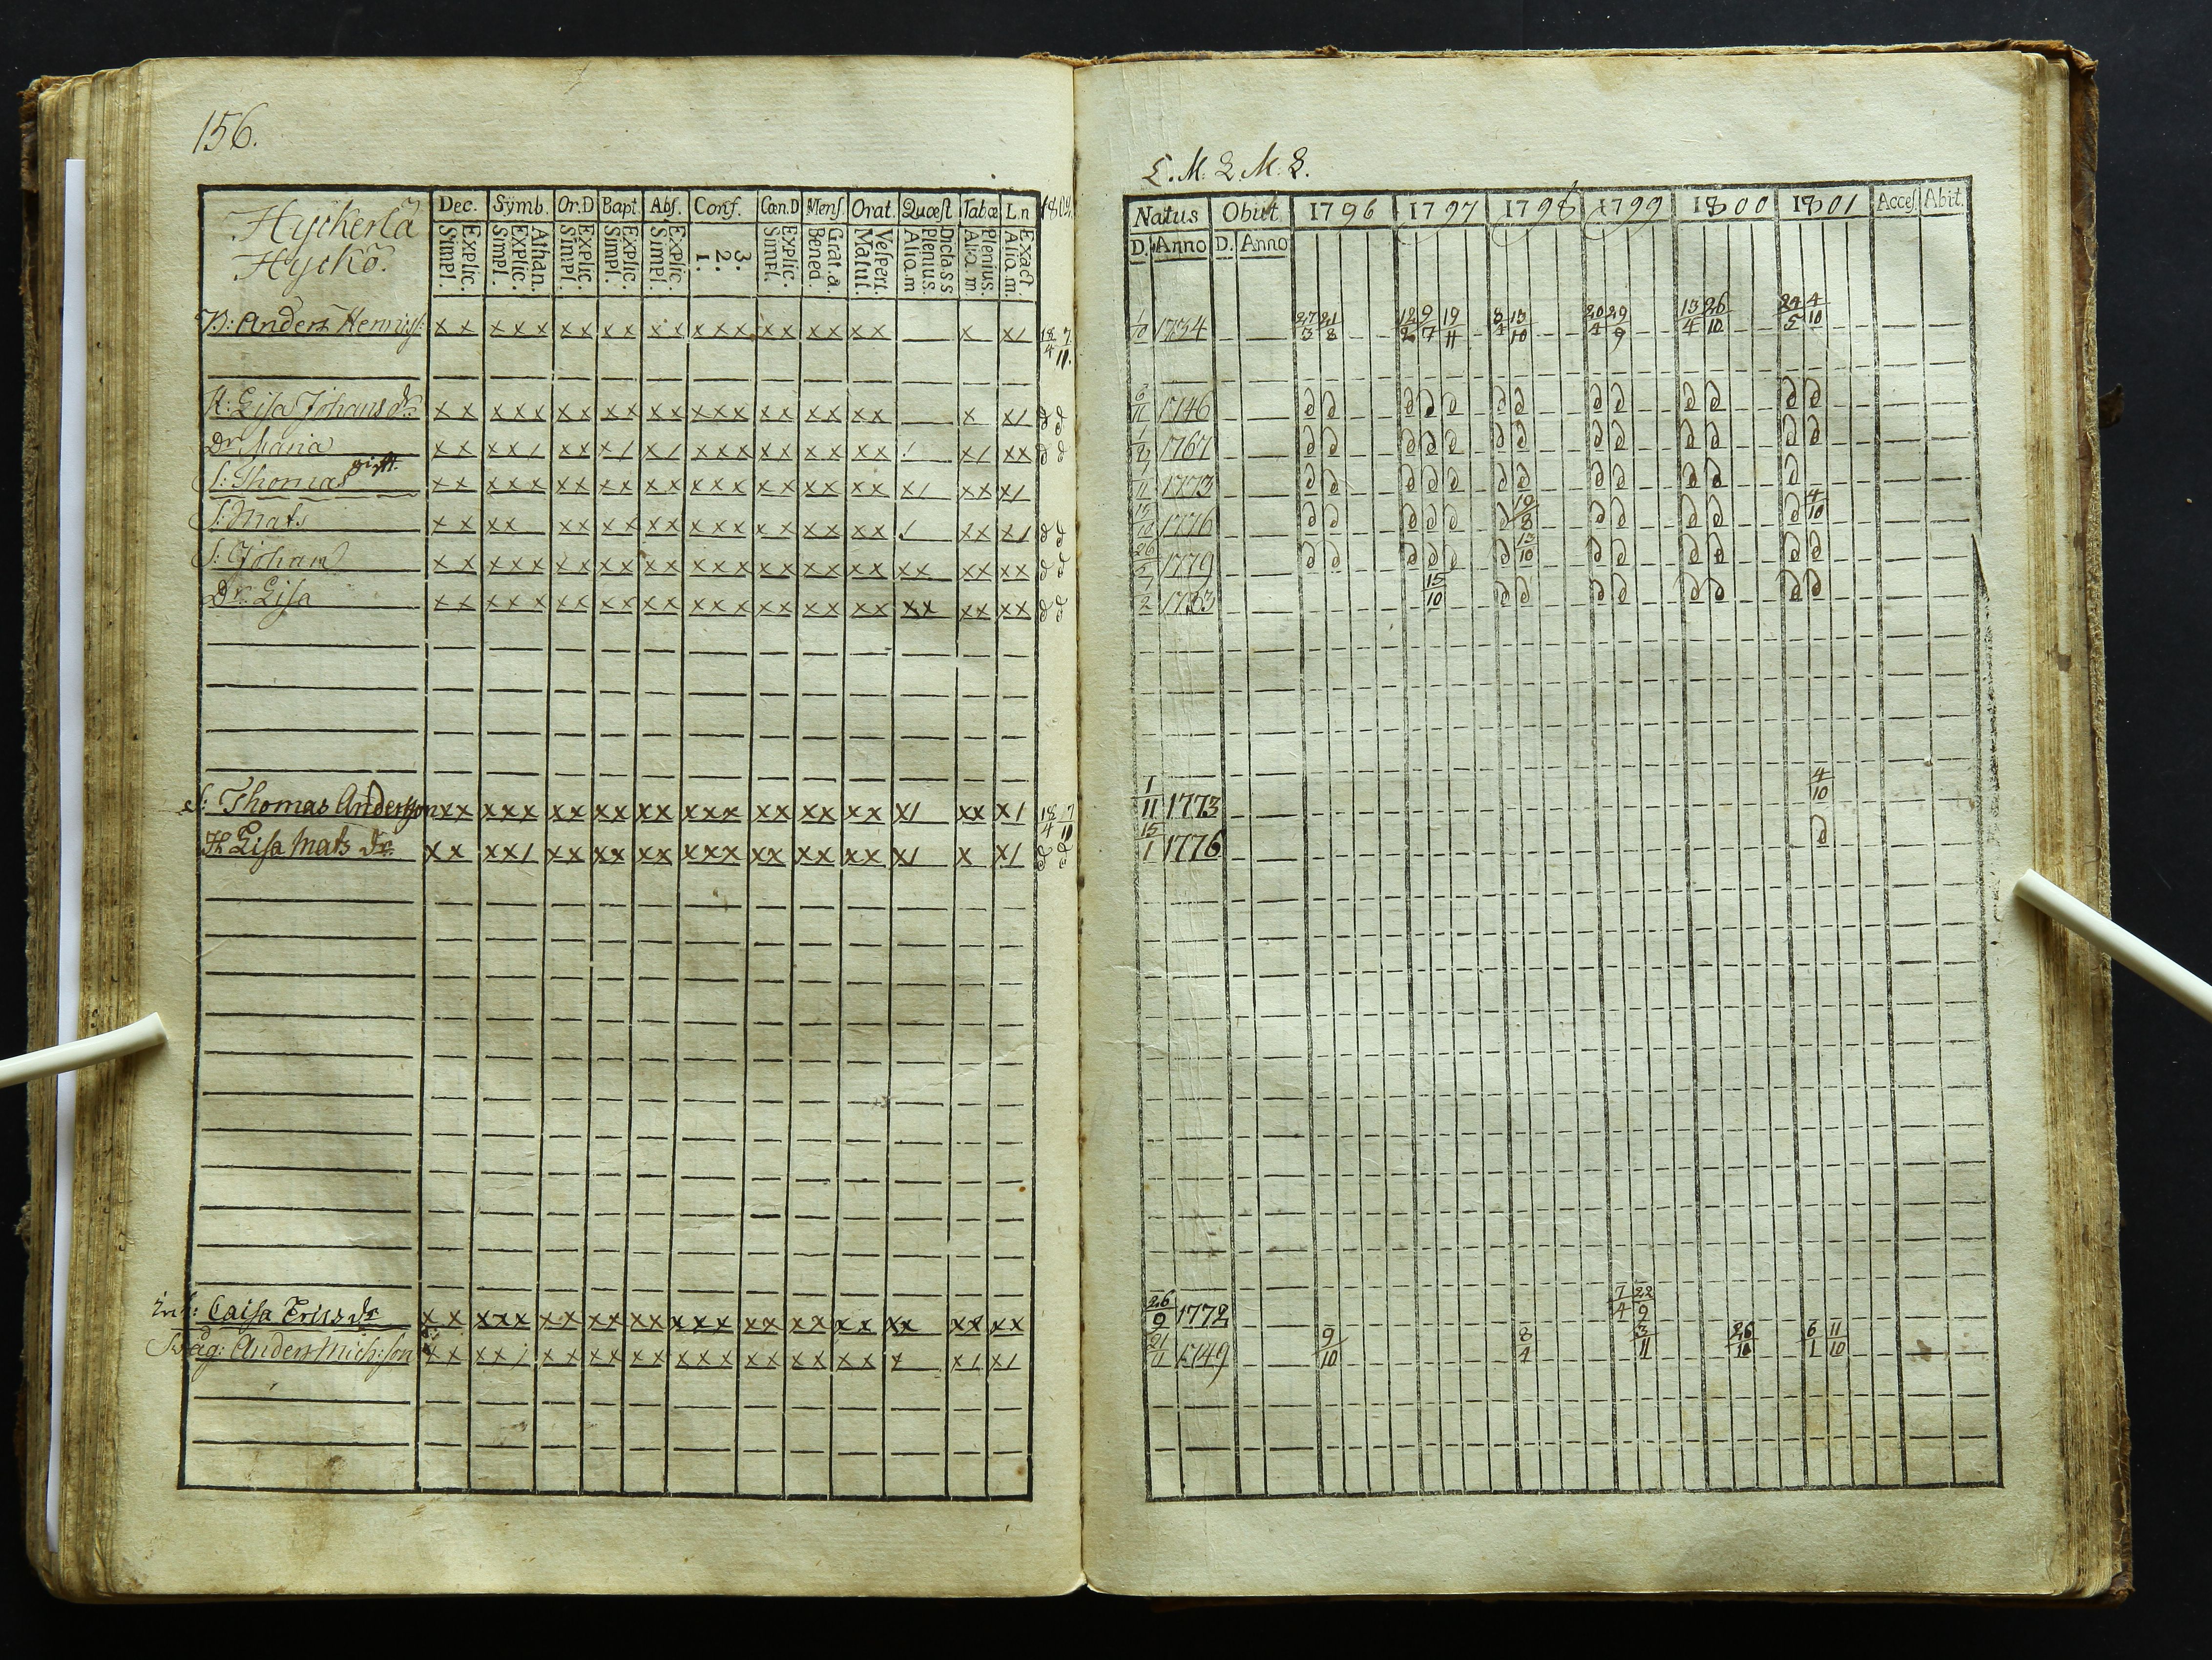 156.
Hyckerlä
Hyckö.
Dec. Symb. Or.D Bapt. Abs. Conf. Cœn.D Mens. Orat. Quæst Tabœ L.n 1802.
Explic. Simpl. Athan. Explic. Simpl. Explic. Simpl. Explic. Simpl. Explic. Simpl. 3. 2. 1. Explic. Simpl. Grat. a. Bened. Vespert. Matut. Dicta s s Plenius. Alio. m Plenius. Alio. m. Exact Aliq. m.
B: Anders Hennings: x x x x x x x x x x x x x x x x x x x x x x x/ 18/4 7/11.
H: Lisa Johans dr x x x x x x x x x x x x x x x x x x x x x x x/ ∂ ∂
Dr Maria x x x x / x x x / x / x x x x x x x x x / x / x x ∂ ∂
S: Thomas gift. x x x x x x x x x x x x x x x x x x x x x / x x x /
S: Mats x x x x x x x x x x x x x x x x x x x / x x x / ∂ ∂
S: Johan x x x x x x x x x x x x x x x x x x x x x x x x x x ∂ ∂
Dr: Lisa x x x x x x x x x x x x x x x x x x x x x x x x x x ∂ ∂
S: Thomas Andersson x x x x x x x x x x x x x x x x x x x x x / x x x / 18/4 7/11
H Lisa Mats dr. x x x x / x x x x x x x x x x x x x x x x / x x / ∂ ∂
Inh: Caisa Erics dr x x x x x x x x x x x x x x x x x x x x x x x x x x
Anders Mich:son x x x x / x x x x x x x x x x x x x x x x x / x /
L. M. L. M. L.
Natus Obiit 1796 1797 1798 1799 1800 1801 Acces. Abit.
D. Anno D. Anno
1/10 1734 27/3 21/8 12/2 9/7 19/11 8/4 13/10 20/4 29/9 13/4 26/10 24/5 4/10
6/11 1746 ∂ ∂ ∂ ∂ ∂ ∂ ∂ ∂ ∂ ∂ ∂ ∂ ∂
1/8 1767 ∂ ∂ ∂ ∂ ∂ ∂ ∂ ∂ ∂ ∂ ∂ ∂ ∂
1/11 1773 ∂ ∂ ∂ ∂ ∂ ∂ ∂ ∂ ∂ ∂ ∂ ∂
1776 ∂ ∂ ∂ ∂ ∂ ∂ 19/8 ∂ ∂ ∂ ∂ ∂ 4/10
26/5 1779 ∂ ∂ ∂ ∂ ∂ ∂ 13/10 ∂ ∂ ∂ ∂ ∂ ∂
7/2 1783 15/10 ∂ ∂ ∂ ∂ ∂ ∂ ∂ ∂
1/11 1773 4/10
15/1 1776 ∂
26/9 1772 7/4 22/9
21/11 1749 9/10 8/4 3/11 26/10 6/1 11/10